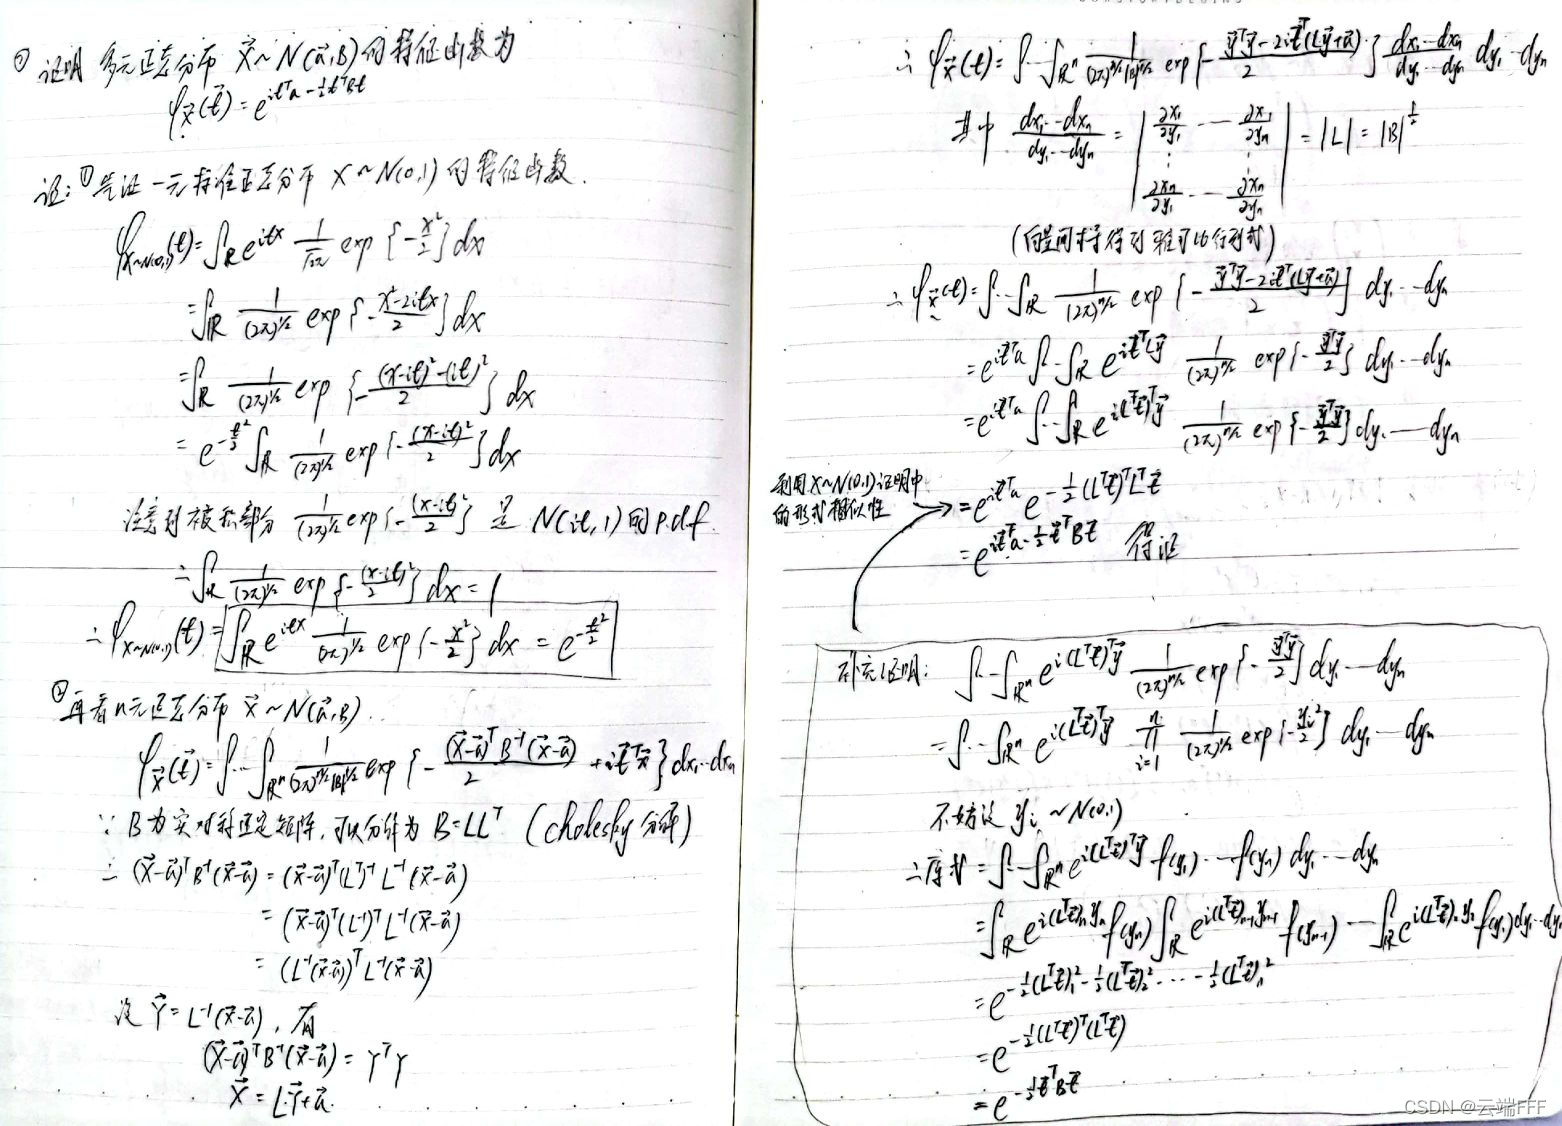 ② 证明 多元正态分布 $\vec{X}\sim N(\vec{a},B)$ 的特征函数为
$\varphi_{\vec{X}}(\vec{t})=e^{i t^T a-\frac{1}{2}t^T B t}$
证: ① 先证一元标准正态分布 $X\sim N(0,1)$ 的特征函数.
$\varphi_{X\sim N(0,1)}(t)=\int_{\mathbb{R}} e^{itx}\frac{1}{\sqrt{2\pi}}\exp\{-\frac{x^2}{2}\}dx$
$=\int_{\mathbb{R}}\frac{1}{(2\pi)^{1/2}}\exp\{-\frac{x^2-2itx}{2}\}dx$
$=\int_{\mathbb{R}}\frac{1}{(2\pi)^{1/2}}\exp\{-\frac{(x-it)^2-(it)^2}{2}\}dx$
$=e^{-\frac{t^2}{2}}\int_{\mathbb{R}}\frac{1}{(2\pi)^{1/2}}\exp\{-\frac{(x-it)^2}{2}\}dx$
注意到被积部分 $\frac{1}{(2\pi)^{1/2}}\exp\{-\frac{(x-it)^2}{2}\}$ 是 $N(it,1)$ 的p.d.f.
$\therefore\int_{\mathbb{R}}\frac{1}{(2\pi)^{1/2}}\exp\{-\frac{(x-it)^2}{2}\}dx=1$
$\therefore\varphi_{X\sim N(0,1)}(t)=\int_{\mathbb{R}} e^{itx}\frac{1}{(2\pi)^{1/2}}\exp\{-\frac{x^2}{2}\}dx=e^{-\frac{t^2}{2}}$
② 再看n元正态分布 $\vec{X}\sim N(\vec{a},B)$.
$\varphi_{\vec{X}}(\vec{t})=\int\cdots\int_{\mathbb{R}^n}\frac{1}{(2\pi)^{n/2}|B|^{1/2}}\exp\{-\frac{(\vec{x}-\vec{a})^T B^{-1}(\vec{x}-\vec{a})}{2}+i\vec{t}^T\vec{x}\}dx_1\cdots dx_n$
∵ B为实对称正定矩阵, 可以分解为 $B=LL^T$ (cholesky 分解)
$\therefore(\vec{x}-\vec{a})^T B^{-1}(\vec{x}-\vec{a})=(\vec{x}-\vec{a})^T(L^T)^{-1}L^{-1}(\vec{x}-\vec{a})$
$=(\vec{x}-\vec{a})^T(L^{-1})^T L^{-1}(\vec{x}-\vec{a})$
$=(L^{-1}(\vec{x}-\vec{a}))^T L^{-1}(\vec{x}-\vec{a})$
设 $\vec{Y}=L^{-1}(\vec{x}-\vec{a})$, 有
$(\vec{x}-\vec{a})^T B^{-1}(\vec{x}-\vec{a})=Y^T Y$
$\vec{X}=L\vec{Y}+\vec{a}$.
$\therefore\varphi_{\vec{X}}(t)=\int\cdots\int_{\mathbb{R}^n}\frac{1}{(2\pi)^{n/2}|B|^{1/2}}\exp\{-\frac{\vec{y}^T\vec{y}-2i\vec{t}^T(L\vec{y}+\vec{a})}{2}\}\frac{dx_1\cdots dx_n}{dy_1\cdots dy_n}dy_1\cdots dy_n$
其中 $\frac{dx_1\cdots dx_n}{dy_1\cdots dy_n}=\begin{vmatrix}\frac{\partial x_1}{\partial y_1}&\cdots&\frac{\partial x_1}{\partial y_n}\\ \vdots&&\vdots\\ \frac{\partial x_n}{\partial y_1}&\cdots&\frac{\partial x_n}{\partial y_n}\end{vmatrix}=|L|=|B|^{\frac{1}{2}}$
(向量间求导得到雅可比行列式)
$\therefore\varphi_{\vec{X}}(t)=\int\cdots\int_{\mathbb{R}}\frac{1}{(2\pi)^{n/2}}\exp\{-\frac{\vec{y}^T\vec{y}-2i\vec{t}^T(L\vec{y}+\vec{a})}{2}\}dy_1\cdots dy_n$
$=e^{i\vec{t}^T a}\int\cdots\int_{\mathbb{R}} e^{i\vec{t}^T L\vec{y}}\frac{1}{(2\pi)^{n/2}}\exp\{-\frac{\vec{y}^T\vec{y}}{2}\}dy_1\cdots dy_n$
$=e^{i\vec{t}^T a}\int\cdots\int_{\mathbb{R}} e^{i(L^T\vec{t})^T\vec{y}}\frac{1}{(2\pi)^{n/2}}\exp\{-\frac{\vec{y}^T\vec{y}}{2}\}dy_1\cdots dy_n$
利用X~N(0,1)证明中
的形式相似性
$=e^{i\vec{t}^T a}e^{-\frac{1}{2}(L^T\vec{t})^T L^T\vec{t}}$
$=e^{i\vec{t}^T a-\frac{1}{2}\vec{t}^T B\vec{t}}$ 得证
补充证明: $\int\cdots\int_{\mathbb{R}^n} e^{i(L^T\vec{t})^T\vec{y}}\frac{1}{(2\pi)^{n/2}}\exp\{-\frac{\vec{y}^T\vec{y}}{2}\}dy_1\cdots dy_n$
$=\int\cdots\int_{\mathbb{R}^n} e^{i(L^T\vec{t})^T\vec{y}}\prod_{i=1}^{n}\frac{1}{(2\pi)^{1/2}}\exp\{-\frac{y_i^2}{2}\}dy_1\cdots dy_n$
不妨设 $y_i\sim N(0,1)$
∴原式 $=\int\cdots\int_{\mathbb{R}^n} e^{i(L^T\vec{t})^T\vec{y}}f(y_1)\cdots f(y_n)dy_1\cdots dy_n$
$=\int_{\mathbb{R}} e^{i(L^T\vec{t})_n y_n}f(y_n)\int_{\mathbb{R}} e^{i(L^T\vec{t})_{n-1}y_{n-1}}f(y_{n-1})\cdots\int_{\mathbb{R}} e^{i(L^T\vec{t})_1 y_1}f(y_1)dy_1\cdots dy_n$
$=e^{-\frac{1}{2}(L^T\vec{t})_1^2-\frac{1}{2}(L^T\vec{t})_2^2-\cdots-\frac{1}{2}(L^T\vec{t})_n^2}$
$=e^{-\frac{1}{2}(L^T\vec{t})^T(L^T\vec{t})}$
$=e^{-\frac{1}{2}\vec{t}^T B\vec{t}}$
CSDN @云端FFF